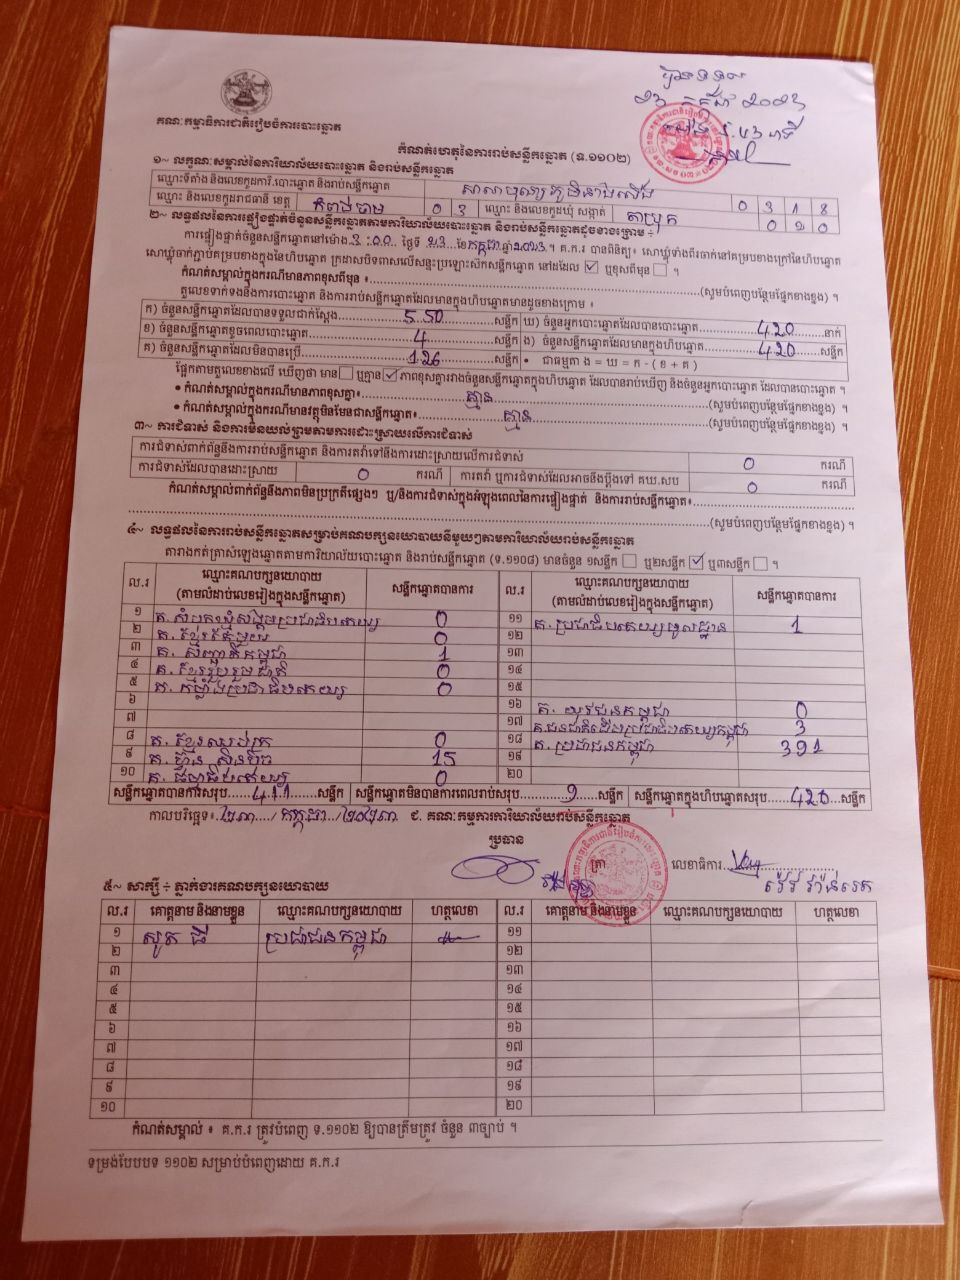 គណៈកម្មាធិការជាតិរៀបចំការបោះឆ្នោត
កំណត់ហេតុនៃការរាប់សន្លឹកឆ្នោត (ទ.១១០២)
១~ លក្ខណៈសម្គាល់នៃការិយាល័យបោះឆ្នោត និងរាប់សន្លឹកឆ្នោត
ឈ្មោះទីតាំង និងលេខកូដការិ.បោះឆ្នោត និងរាប់សន្លឹកឆ្នោត 0 3 1 8
ឈ្មោះ និងលេខកូដរាជធានី ខេត្ត កំពង់ចាម 0 3 ឈ្មោះ និងលេខកូដឃុំ សង្កាត់ 0 1 0
២~ លទ្ធផលនៃការផ្ទៀងផ្ទាត់ចំនួនសន្លឹកឆ្នោតតាមការិយាល័យបោះឆ្នោត និងរាប់សន្លឹកឆ្នោតដូចខាងក្រោម ÷
ការផ្ទៀងផ្ទាត់ចំនួនសន្លឹកឆ្នោតនៅម៉ោង 3:00 ថ្ងៃទី 23 ខែ កក្កដា ឆ្នាំ 2023 ។ គ.ក.រ បានពិនិត្យ៖ សោឃ្លុំទាំងពីរចាក់នៅគម្របខាងក្រៅនៃហិបឆ្នោត
សោឃ្លុំចាក់ភ្ជាប់គម្របខាងក្នុងនៃហិបឆ្នោត ក្រដាសបិទពាសលើសន្ទះប្រឡោះស៊កសន្លឹកឆ្នោត នៅដដែល ☑ ឬខុសពីមុន ☐ ។
កំណត់សម្គាល់ក្នុងករណីមានភាពខុសពីមុន ៖ (សូមបំពេញបន្ថែមផ្នែកខាងខ្នង) ។
តួលេខទាក់ទងនឹងការបោះឆ្នោត និងការរាប់សន្លឹកឆ្នោតដែលមានក្នុងហិបឆ្នោតមានដូចខាងក្រោម ៖
ក) ចំនួនសន្លឹកឆ្នោតដែលបានទទួលជាក់ស្តែង 550 សន្លឹក ឃ) ចំនួនអ្នកបោះឆ្នោតដែលបានបោះឆ្នោត 420 នាក់
ខ) ចំនួនសន្លឹកឆ្នោតខូចពេលបោះឆ្នោត 4 សន្លឹក ង) ចំនួនសន្លឹកឆ្នោតដែលមានក្នុងហិបឆ្នោត 420 សន្លឹក
គ) ចំនួនសន្លឹកឆ្នោតដែលមិនបានប្រើ 126 សន្លឹក • ជាធម្មតា ង = ឃ = ក - ( ខ + គ )
ផ្អែកតាមតួលេខខាងលើ ឃើញថា មាន ☐ ឬគ្មាន ☑ ភាពខុសគ្នារវាងចំនួនសន្លឹកឆ្នោតក្នុងហិបឆ្នោត ដែលបានរាប់ឃើញ និងចំនួនអ្នកបោះឆ្នោត ដែលបានបោះឆ្នោត ។
• កំណត់សម្គាល់ក្នុងករណីមានភាពខុសគ្នា៖ គ្មាន (សូមបំពេញបន្ថែមផ្នែកខាងខ្នង) ។
• កំណត់សម្គាល់ក្នុងករណីមានវត្ថុមិនមែនជាសន្លឹកឆ្នោត៖ គ្មាន (សូមបំពេញបន្ថែមផ្នែកខាងខ្នង) ។
៣~ ការជំទាស់ និងការមិនយល់ព្រមតាមការដោះស្រាយលើការជំទាស់
ការជំទាស់ពាក់ព័ន្ធនឹងការរាប់សន្លឹកឆ្នោត និងការតវ៉ាទៅនឹងការដោះស្រាយលើការជំទាស់ 0 ករណី
ការជំទាស់ដែលបានដោះស្រាយ 0 ករណី ការតវ៉ា ឬការជំទាស់ដែលអាចនឹងប្តឹងទៅ គឃ.សប 0 ករណី
កំណត់សម្គាល់ពាក់ព័ន្ធនឹងភាពមិនប្រក្រតីផ្សេងៗ ឬ/និងការជំទាស់ក្នុងអំឡុងពេលនៃការផ្ទៀងផ្ទាត់ និងការរាប់សន្លឹកឆ្នោត៖
(សូមបំពេញបន្ថែមផ្នែកខាងខ្នង) ។
៤~ លទ្ធផលនៃការរាប់សន្លឹកឆ្នោតសម្រាប់គណបក្សនយោបាយនីមួយៗតាមការិយាល័យរាប់សន្លឹកឆ្នោត
តារាងកត់ត្រាសំឡេងឆ្នោតតាមការិយាល័យបោះឆ្នោត និងរាប់សន្លឹកឆ្នោត (ទ.១១០៨) មានចំនួន ១សន្លឹក ☐ ឬ២សន្លឹក ☑ ឬ៣សន្លឹក ☐ ។
ល.រ ឈ្មោះគណបក្សនយោបាយ សន្លឹកឆ្នោតបានការ ល.រ ឈ្មោះគណបក្សនយោបាយ សន្លឹកឆ្នោតបានការ
(តាមលំដាប់លេខរៀងក្នុងសន្លឹកឆ្នោត) (តាមលំដាប់លេខរៀងក្នុងសន្លឹកឆ្នោត)
១ គ. សំបុកឃ្មុំសង្គមប្រជាធិបតេយ្យ 0 ១១ គ. ប្រជាធិបតេយ្យមូលដ្ឋាន 1
២ គ. ខ្មែរតែមួយ 0 ១២
៣ គ. សញ្ជាតិកម្ពុជា 1 ១៣
៤ គ. ខ្មែររួបរួមជាតិ 0 ១៤
៥ គ. កម្លាំងប្រជាធិបតេយ្យ 0 ១៥
៦ ១៦ គ. យុវជនកម្ពុជា 0
៧ ១៧ គ. ជនជាតិដើមប្រជាធិបតេយ្យកម្ពុជា 3
៨ គ. 0 ១៨ គ. ប្រជាជនកម្ពុជា 391
៩ គ. ហ្វ៊ុន ស៊ិនប៉ិច 15 ១៩
១០ គ. ធម្មាធិបតេយ្យ 0 ២០
សន្លឹកឆ្នោតបានការសរុប 411 សន្លឹក សន្លឹកឆ្នោតមិនបានការពេលរាប់សរុប 9 សន្លឹក សន្លឹកឆ្នោតក្នុងហិបឆ្នោតសរុប 420 សន្លឹក
កាលបរិច្ឆេទ៖ ២៣/ កក្កដា /២០២៣ ជ. គណៈកម្មការការិយាល័យរាប់សន្លឹកឆ្នោត
ប្រធាន
ត្រា លេខាធិការ
៥~ សាក្សី ÷ ភ្នាក់ងារគណបក្សនយោបាយ
ល.រ គោត្តនាម និងនាមខ្លួន ឈ្មោះគណបក្សនយោបាយ ហត្ថលេខា ល.រ គោត្តនាម និងនាមខ្លួន ឈ្មោះគណបក្សនយោបាយ ហត្ថលេខា
១ សួត ធី ប្រជាជនកម្ពុជា ១១
២ ១២
៣ ១៣
៤ ១៤
៥ ១៥
៦ ១៦
៧ ១៧
៨ ១៨
៩ ១៩
១០ ២០
កំណត់សម្គាល់ ៖ គ.ក.រ ត្រូវបំពេញ ទ.១១០២ ឱ្យបានត្រឹមត្រូវ ចំនួន ៣ច្បាប់ ។
ទម្រង់បែបបទ ១១០២ សម្រាប់បំពេញដោយ គ.ក.រ